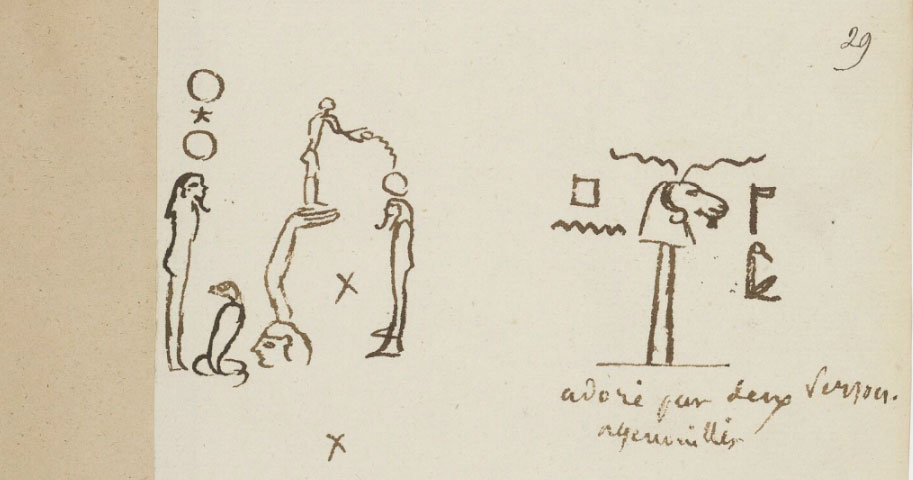 29
adoré par deux
agenouillés